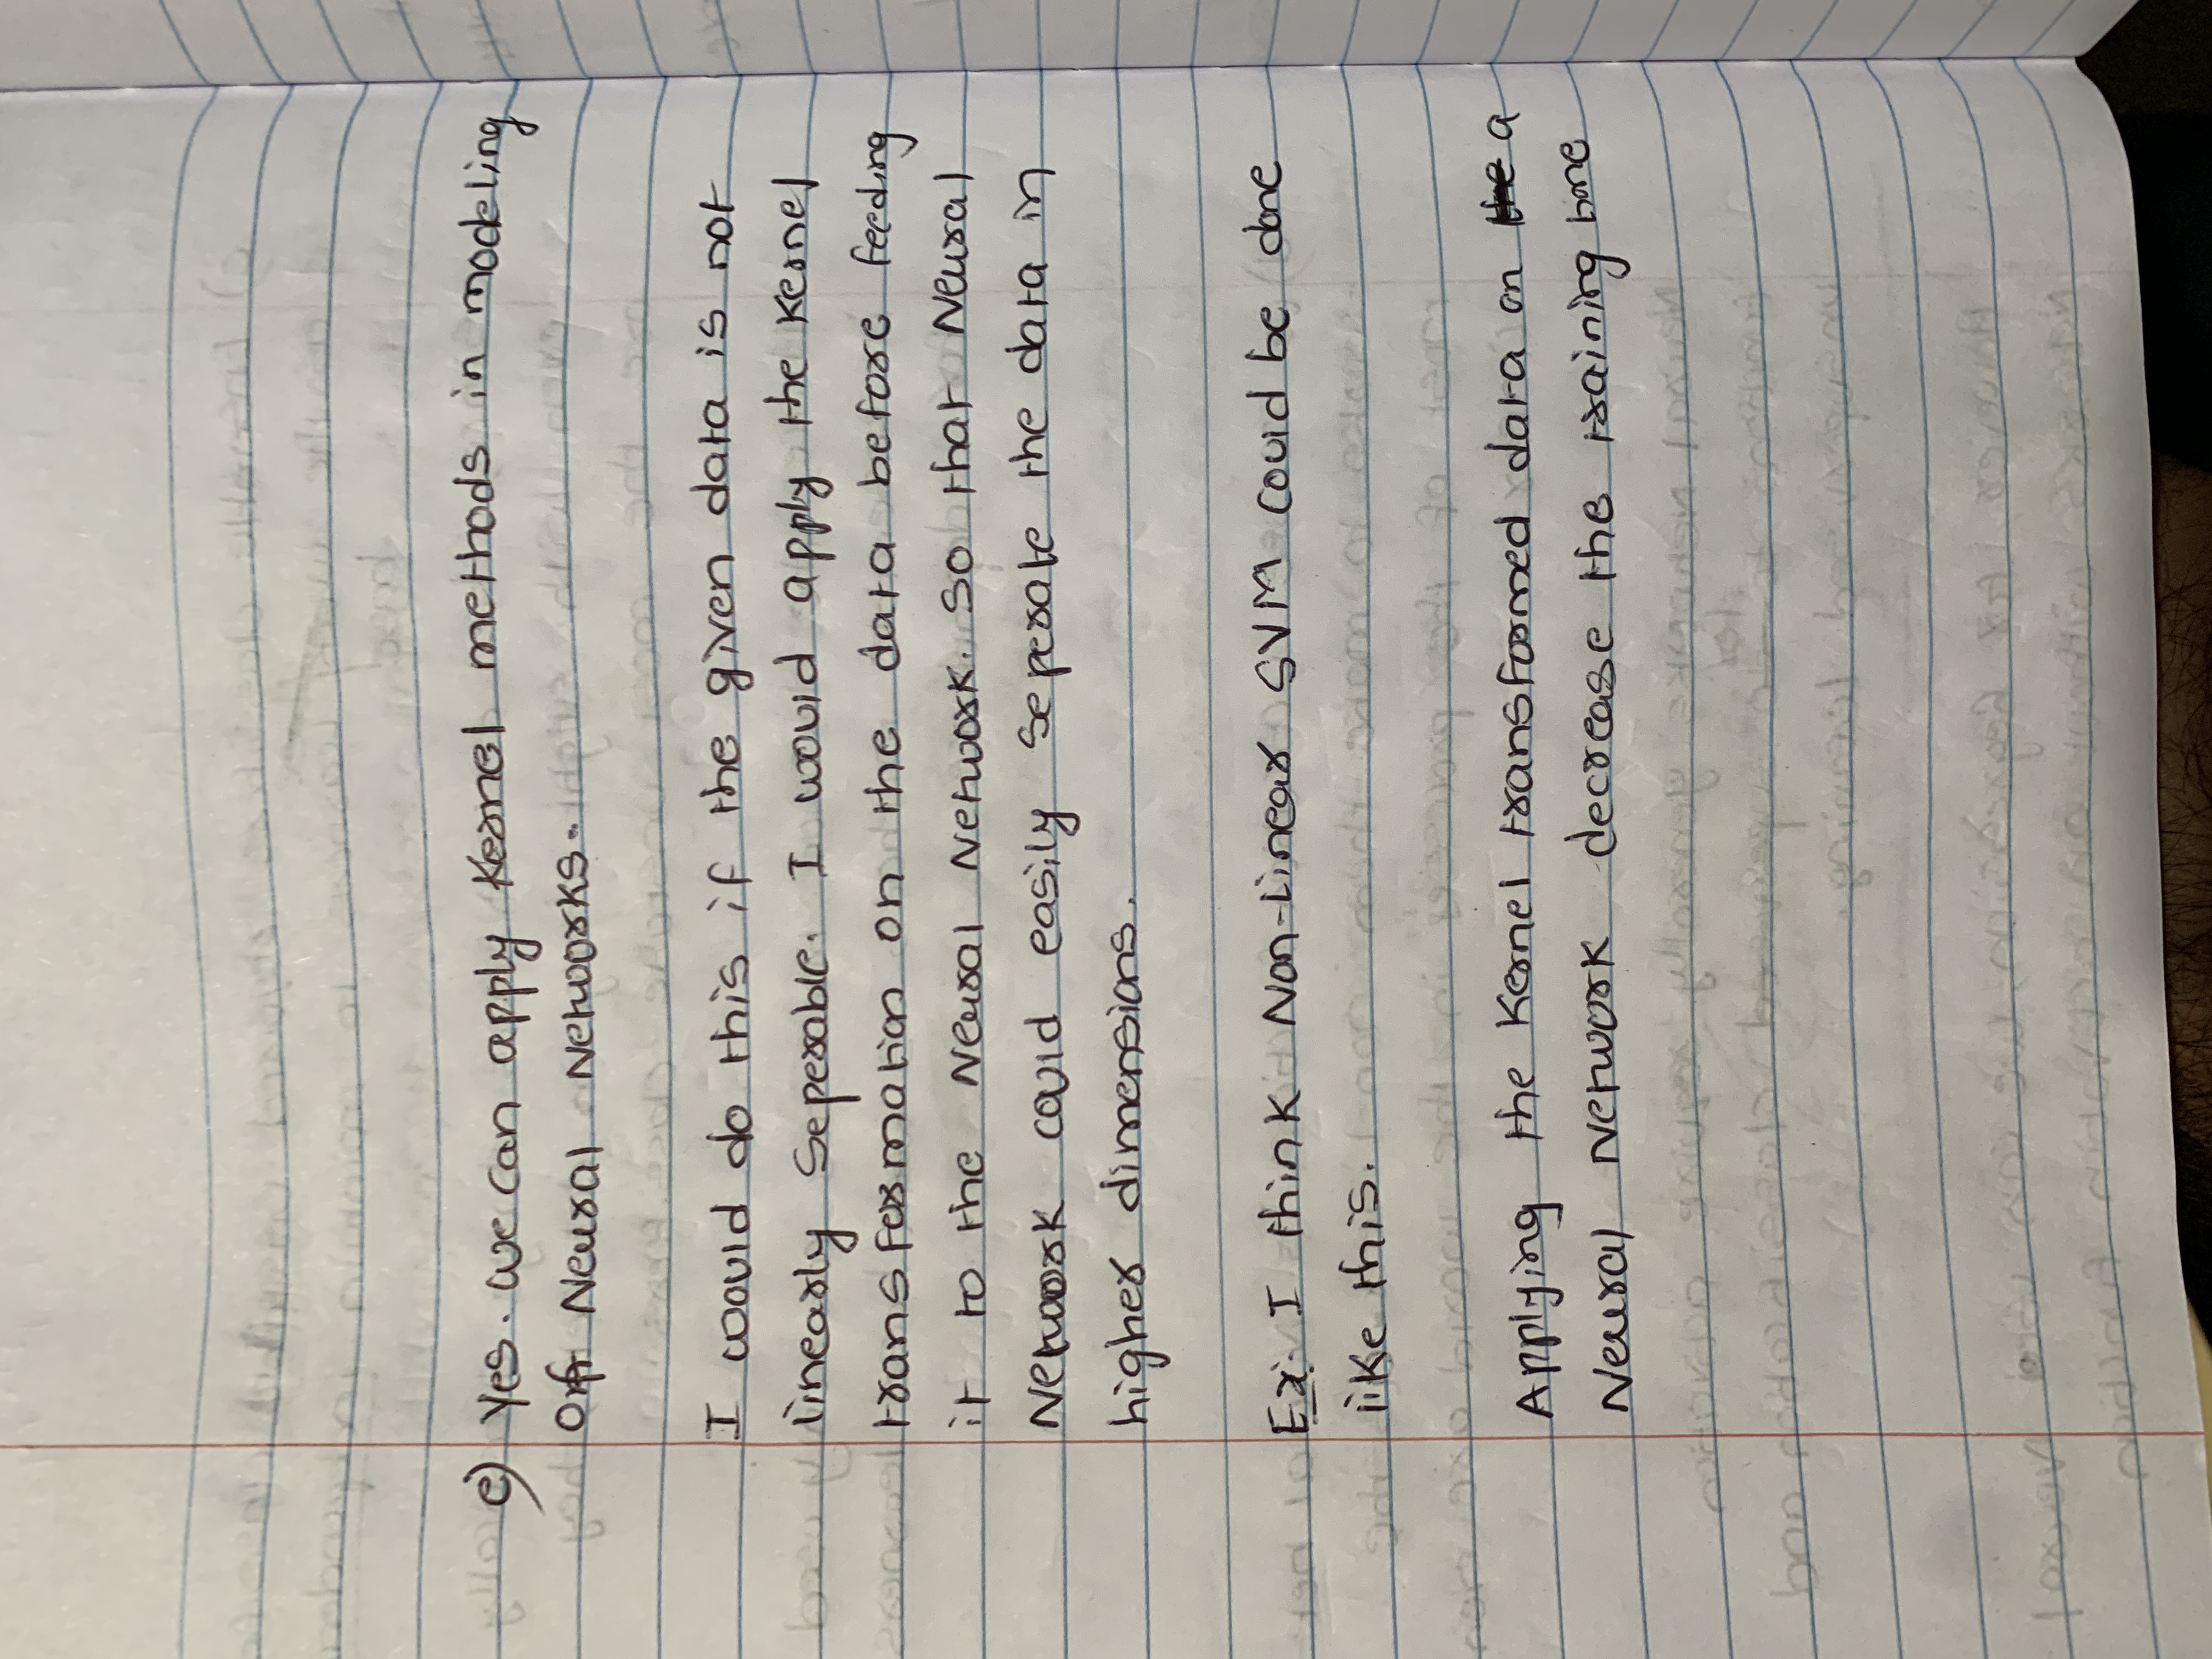 e) Yes. We can apply Kernel methods in modeling
of Neural Networks.
I would do this if the given data is not
linearly Seperable. I would apply the Kernel
transformation on the data before feeding
it to the Neural Network. So that Neural
Network could easily Seperate the data in
higher dimensions.
Ex: I think Non-Linear SVM could be done
like this.
Applying the Kernel transformed data on the a
Neural Network decrease the training time